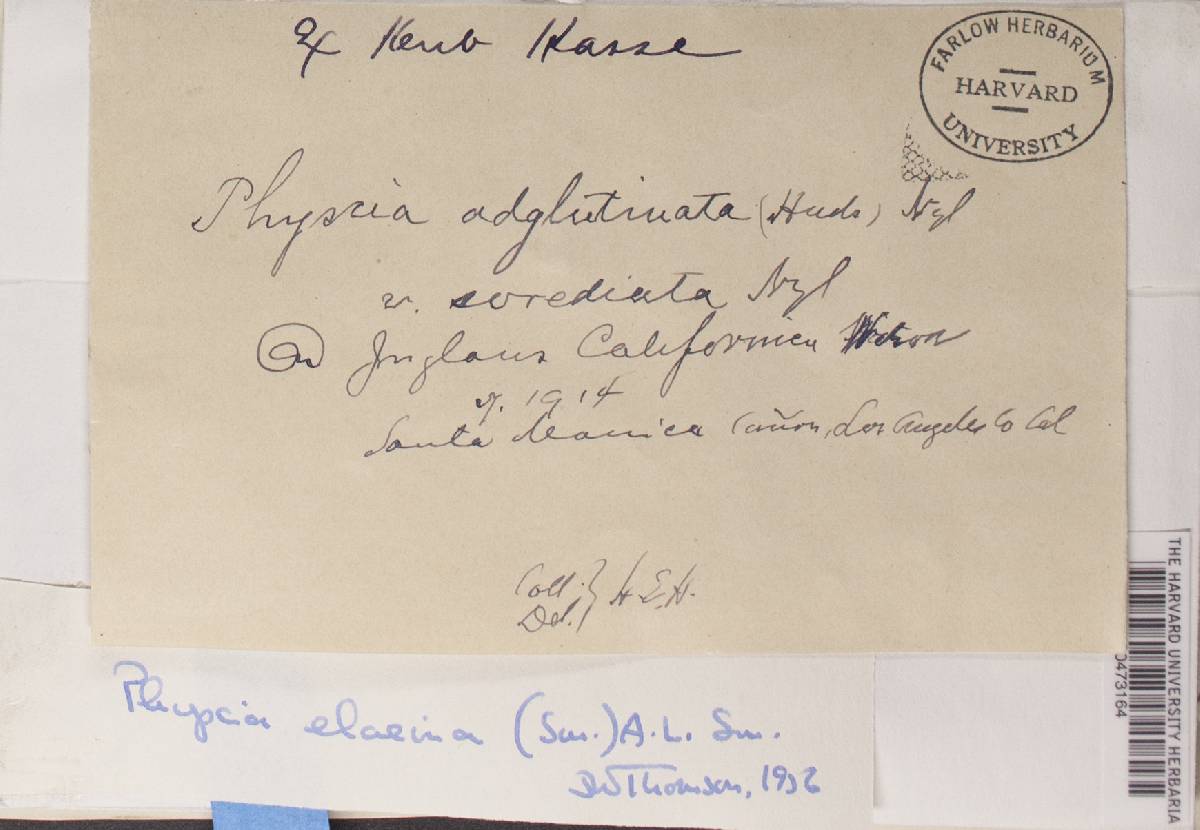 Ex Herb Hasse
FARLOW HERBARIUM
HARVARD
UNIVERSITY
Physcia adglutinata (Huds) Nyl
v. sorediata Nyl
On Juglans Californica Watson
1914
Santa Monica Cañon, Los Angeles Co Cal
Coll.
Det. } H. E. H.
Physcia elaeina (Sm.) A. L. Sm.
JW Thomson, 1952
THE HARVARD UNIVERSITY HERBARIA
0473164